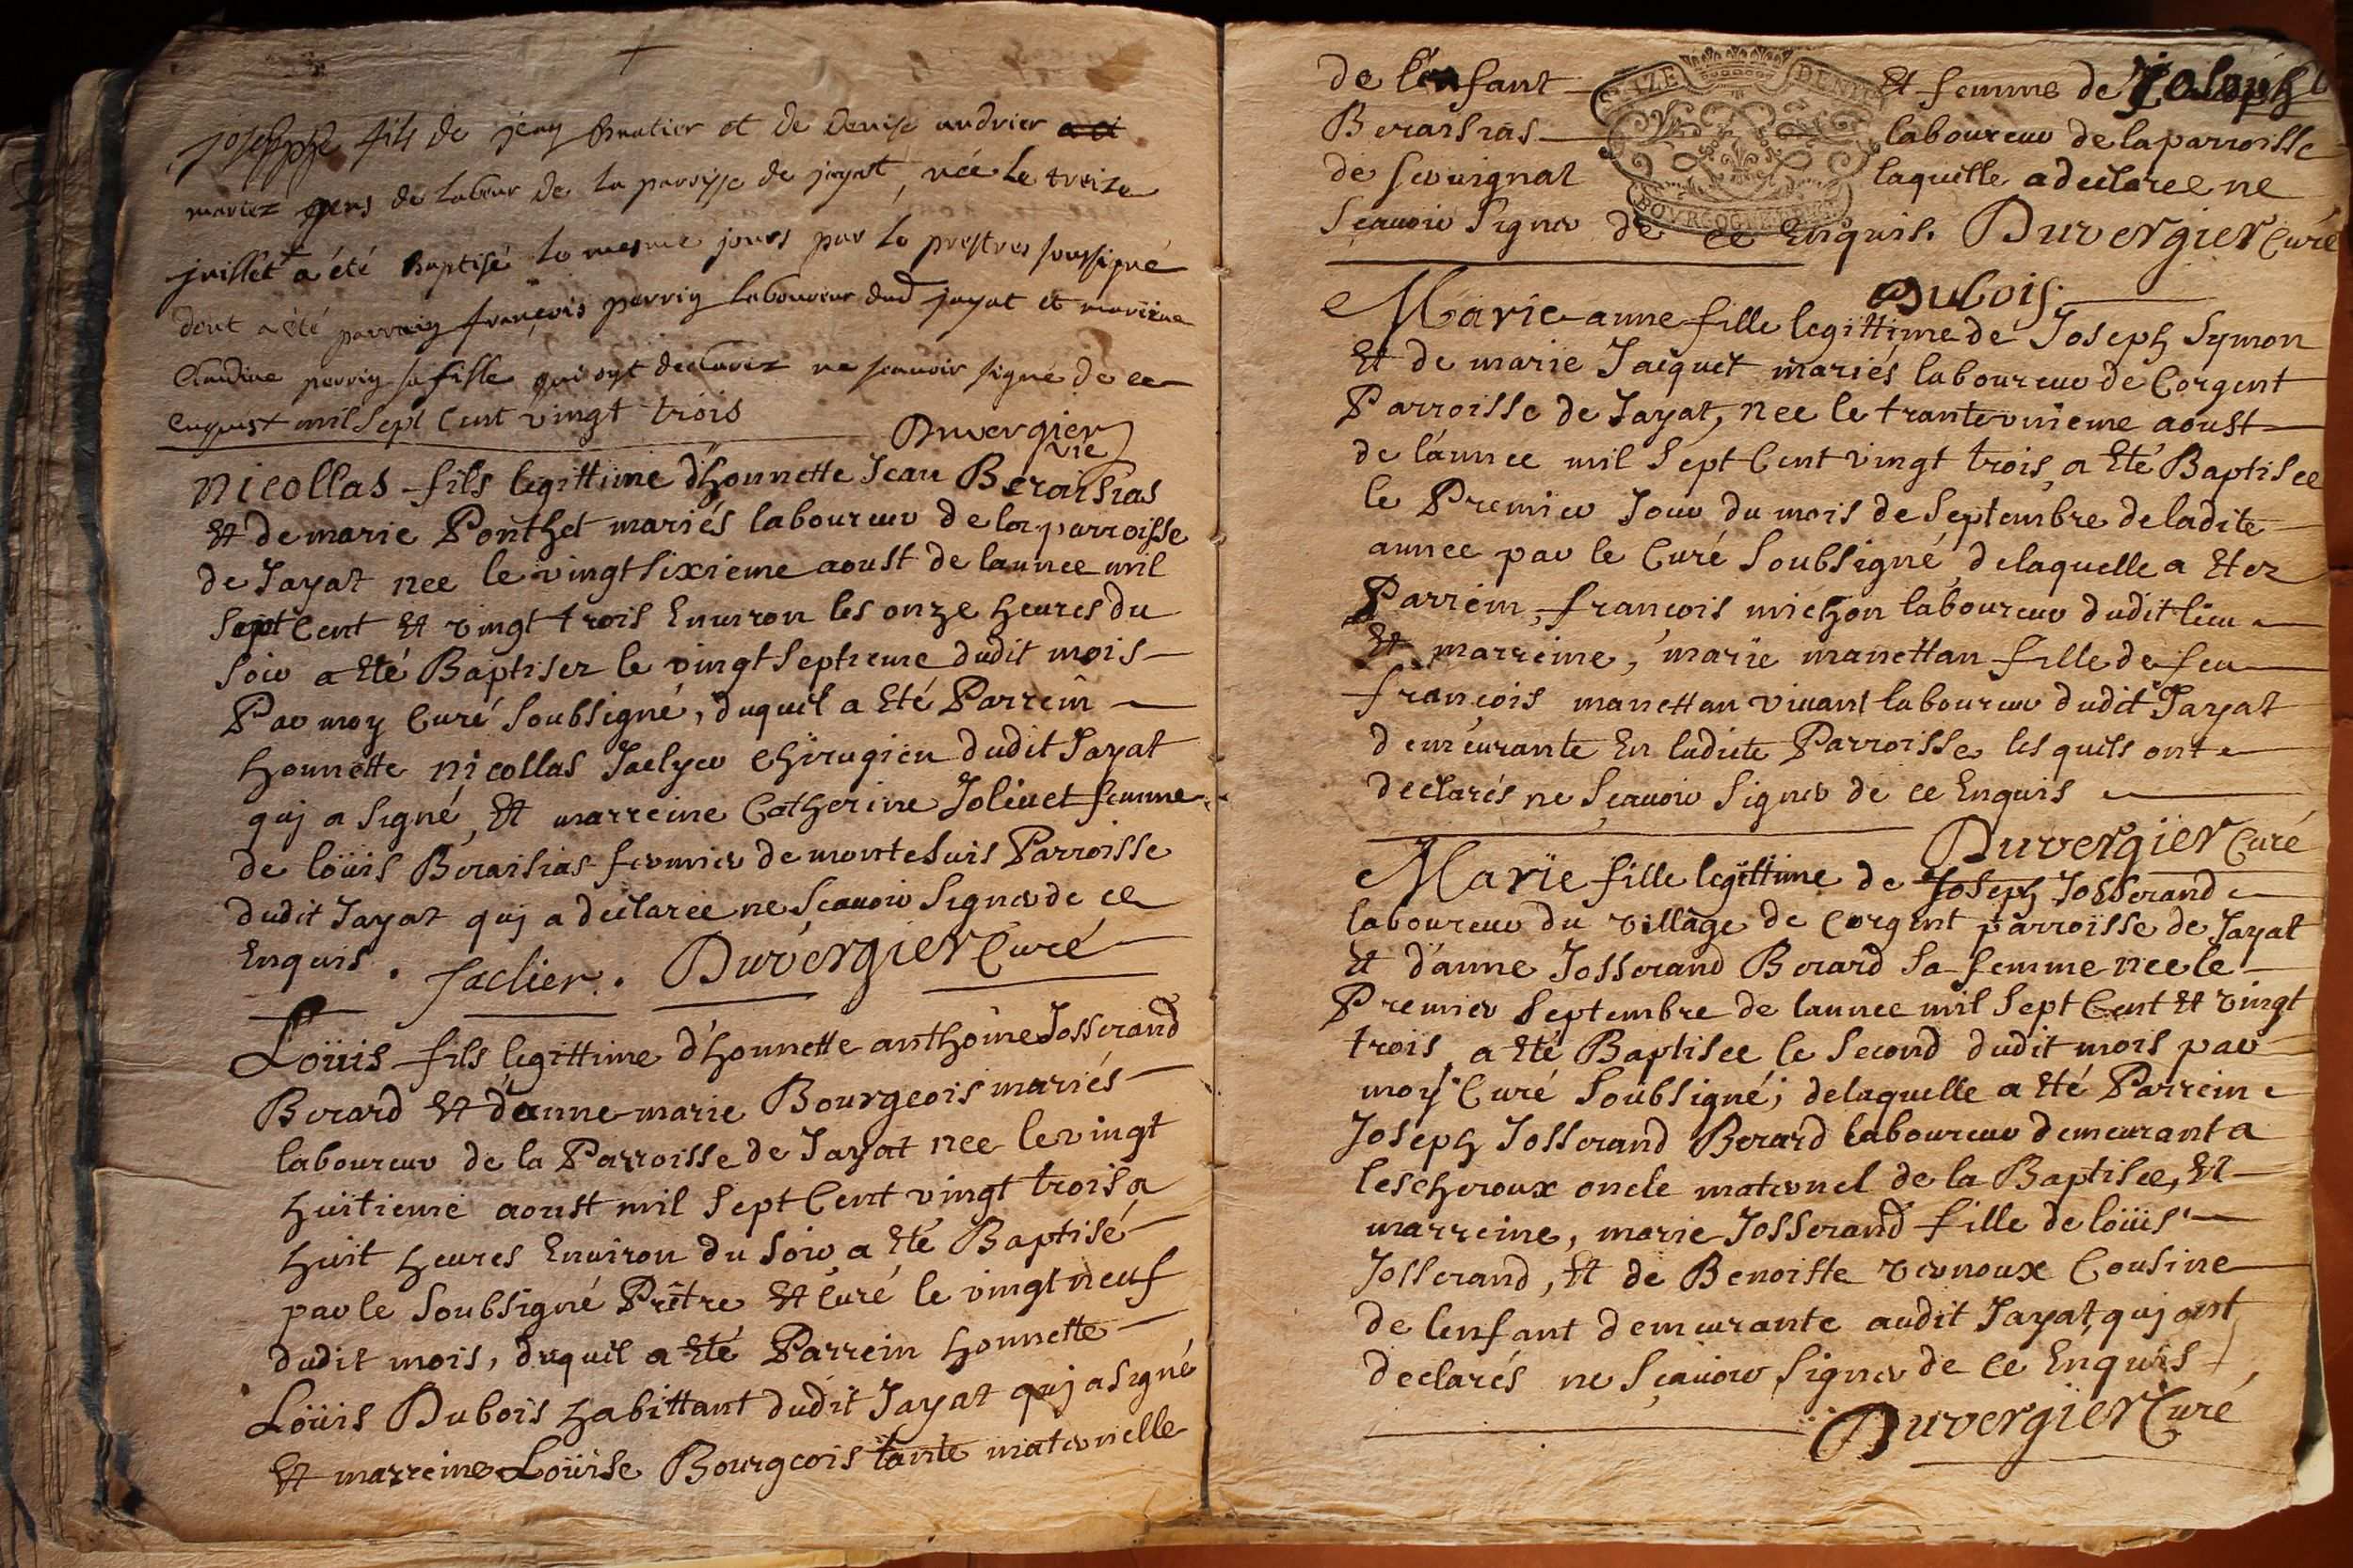 josephe fils de jean Brutier et de Denise andrier
mariez gens de labeur de la paroisse de jayat, née le treize
juillet a été Baptisé le mesme jours par le prestres soussigné
dont a été parrain françois perrin laboureur dud jayat et mareine
Claudine perrin sa fille qui ont declarez ne scauoir signé de ce
enquist mil sept Cent vingt trois
Duvergier
vic
Nicollas fils legittime d'honnette Jean Beraisias
Et de marie Ponthet mariés laboureur de la parroisse
de Jayat nee le vingt sixieme aoust de lannee mil
Sept Cent Et vingt trois Enuiron les onze heures du
soir a Eté Baptiser le vingt septieme dudit mois
Par moy Curé Soubsigné, duquel a Eté Parrein
honnette nicollas Jaclyer Chirugien dudit Jayat
quj a signé, Et marreine Catherine Joliuet femme
de loüis Beraisias fermier de montesuis Parroisse
dudit Jayat quj a declaree ne Scauoir Signer de ce
Enquis. Jaclier. Duvergier Curé
Loüis fils legittime d'honnette anthoine Josserand
Berard Et d'anne marie Bourgeois mariés
laboureur de la Parroisse de Jayat nee le vingt
huitieme aoust mil sept Cent vingt trois a
huit heures Enuiron du soir a Eté Baptisé
par le Soubsigné Prêtre Et Curé le vingt neuf
dudit mois, duquel a Eté Parrein honnette
Loüis Dubois habittant dudit Jayat quj a signé
Et marreine Loüise Bourgeois tante maternelle
de l'enfant Et femme de Joseph
SEIZE DENIERS
Beraisias laboureur de la parroisse
de seruignat laquelle a declaree ne
BOVRGOGNE
Sçauoir Signer de ce Enquis. Duvergier Curé
Dubois.
Marie-anne fille legittime de Joseph Symon
Et de marie Jacquet mariés laboureur de Corgent
Parroisse de Jayat, nee le trante vnieme aoust
de l'annee mil Sept Cent vingt trois, a Eté Baptisee
le Premier Jour du mois de Septembre de ladite
annee par le Curé Soubsigné, delaquelle a Etez
Parrein, françois michon laboureur dudit lieu
Et marreine, marie manettan fille de feu
françois manettan viuant laboureur dudit Jayat
demeurante En ladite Parroisse, lesquels ont
declarés ne Sçauoir Signer de ce Enquis
Duvergier Curé
Marie fille legittime de Joseph Josserand
laboureur du village de Corgent parroisse de Jayat
Et d'anne Josserand Berard sa femme nee le
Premier Septembre de lannee mil Sept Cent Et vingt
trois, a Eté Baptisee le Second dudit mois par
moy Curé Soubsigné; delaquelle a Eté Parrein
Joseph Josserand Berard laboureur demeurant a
lescheroux oncle maternel de la Baptisee, Et
marreine, marie Josserand fille de loüis
Josserand, Et de Benoiste vernoux Cousine
de lenfant demeurante audit Jayat, quj ont
declarés ne Sçauoir Signer de ce Enquis
Duvergier Curé